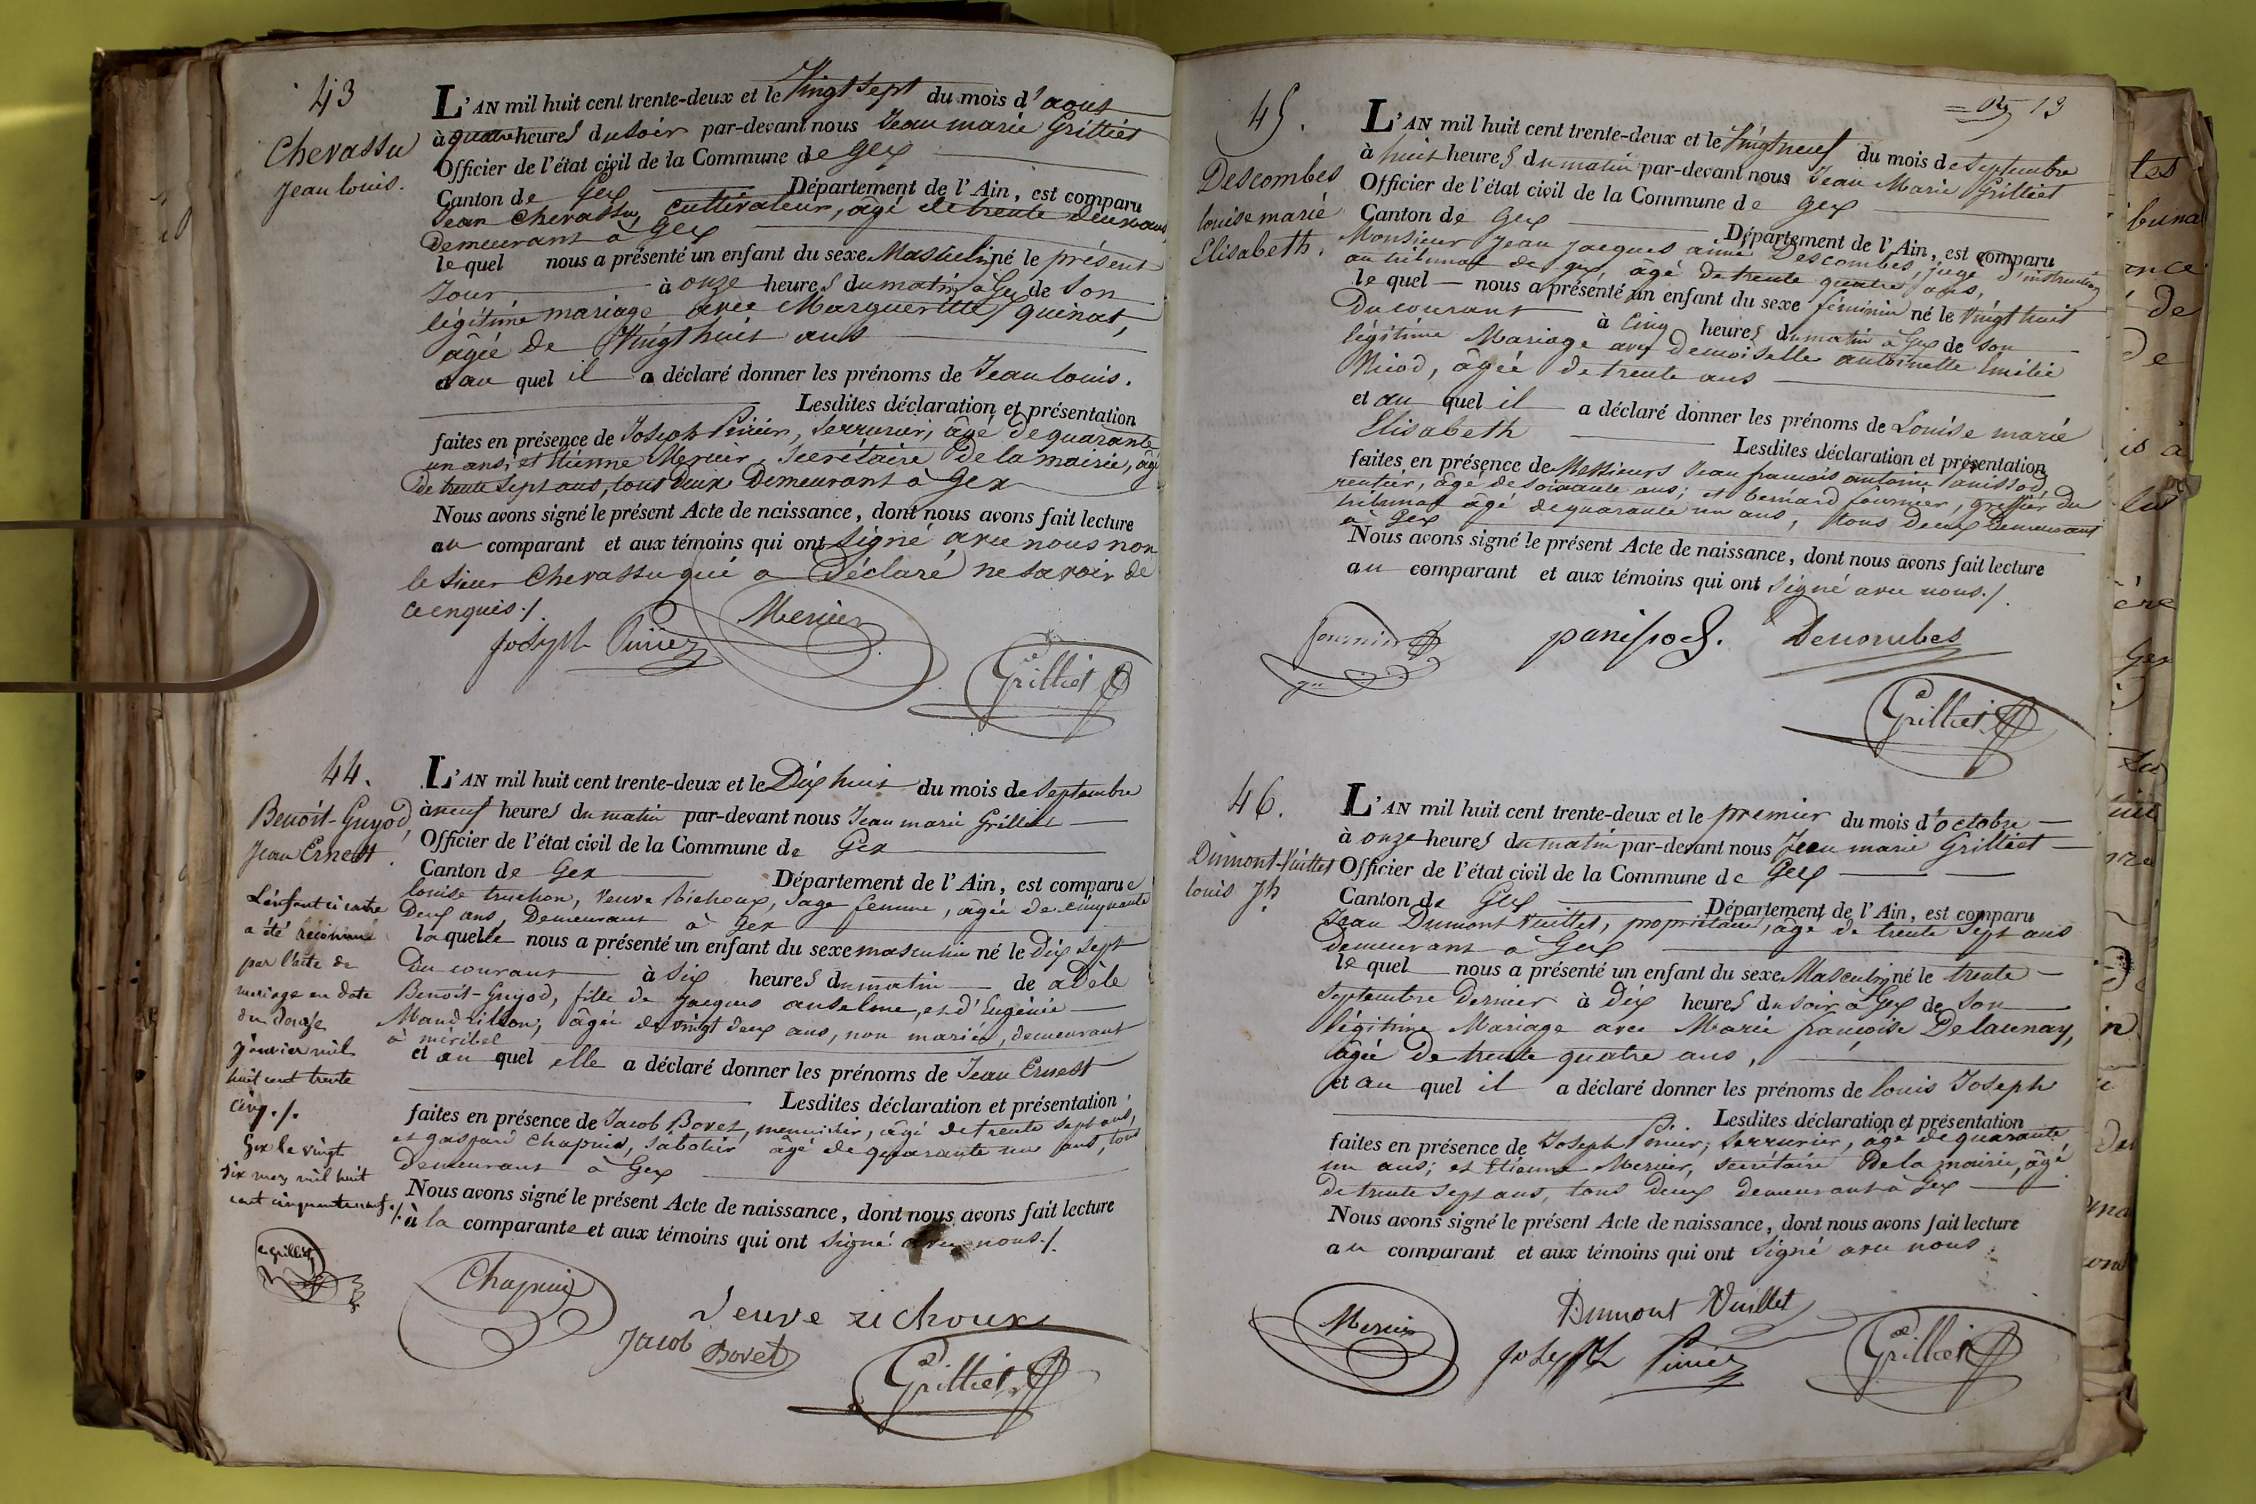 43
Chevassu
Jean louis.
L'AN mil huit cent trente-deux et le Vingt sept du mois d'aout
à quatre heures du soir par-devant nous Jean marie Grilliet
Officier de l'état civil de la Commune de Gex
Canton de Gex Département de l'Ain, est comparu
Jean Chevassu, cultivateur, âgé de trente deux ans,
Demeurant à Gex
le quel nous a présenté un enfant du sexe Masculin né le présent
Jour à onze heures du matin à Gex de son
légitime mariage avec Margueritte quinat,
âgée de Vingt huit ans
et au quel il a déclaré donner les prénoms de Jean louis.
Lesdites déclaration et présentation
faites en présence de Joseph Perrier, Serrurier, âgé de quarante
un ans, et Etienne Mercier, Secrétaire de la mairie, âgé
de trente sept ans, tous deux Demeurant à Gex
Nous avons signé le présent Acte de naissance, dont nous avons fait lecture
au comparant et aux témoins qui ont signé avec nous non
le sieur Chevassu qui a Déclaré ne savoir de
ce enquis./
Joseph Mercier
Grilliet
44.
Benoit-Guyod,
Jean Ernest.
L'enfant ci contre
a été reconnu
par l'acte de
mariage en date
du douze
janvier mil
huit cent trente
cinq./.
Gex le vingt
six may mil huit
cent cinquante neuf./.
Grilliet
L'AN mil huit cent trente-deux et le Dix huit du mois de Septembre
à neuf heures du matin par-devant nous Jean marie Grilliet
Officier de l'état civil de la Commune de Gex
Canton de Gex Département de l'Ain, est comparue
louise truchon, Veuve Richoux, Sage femme, âgée de cinquante
Deux ans, Demeurant à Gex
la quelle nous a présenté un enfant du sexe masculin né le dix sept
Du courant à Six heures du matin de adèle
Benoit-Guyod, fille de Jacques anselme, et d'Eugénie
âgée de vingt deux ans, non mariée, demeurant
à miribel
et au quel elle a déclaré donner les prénoms de Jean Ernest
Lesdites déclaration et présentation
faites en présence de Jacob Bovet, menuisier, âgé de trente sept ans,
et gaspard Chapuis, sabotier âgé de quarante un ans, tous
demeurant à Gex
Nous avons signé le présent Acte de naissance, dont nous avons fait lecture
à la comparante et aux témoins qui ont signé avec nous./.
Chapuis
Veuve richoux
Jacob Bovet
Grilliet
19
45.
Descombes
louise marie
Elisabeth.
L'AN mil huit cent trente-deux et le Vingt neuf du mois de Septembre
à huit heures du matin par-devant nous Jean Marie Grilliet
Officier de l'état civil de la Commune de Gex
Canton de Gex Département de l'Ain, est comparu
Monsieur Jean Jacques aimé Descombes, juge d'instruction
au tribunal de gex, âgé de trente quatre ans,
le quel nous a présenté un enfant du sexe féminin né le Vingt huit
Du courant à Cinq heures du matin à Gex de son
légitime Mariage avec demoiselle antoinette Emilie
Miod, âgée de trente ans
et au quel il a déclaré donner les prénoms de Louise marie
Elisabeth
Lesdites déclaration et présentation
faites en présence de Messieurs Jean françois antoine Panissod,
rentier, âgé de soixante ans; et bernard fournier, greffier du
tribunal âgé de quarante un ans, tous Deux Demeurant
à Gex
Nous avons signé le présent Acte de naissance, dont nous avons fait lecture
au comparant et aux témoins qui ont signé avec nous./.
fournier panissod. Descombes
Grilliet
46.
Dumont-Vuillet
louis Jh
L'AN mil huit cent trente-deux et le premier du mois d'octobre
à onze heures du matin par-devant nous Jean marie Grilliet
Officier de l'état civil de la Commune de Gex
Canton de Gex Département de l'Ain, est comparu
Jean Dumont Vuillet, propriétaire, âgé de trente sept ans
demeurant à Gex
le quel nous a présenté un enfant du sexe Masculin né le trente
septembre dernier à dix heures du soir à Gex de son
légitime Mariage avec Marie françoise Delaunay,
âgée De trente quatre ans,
et au quel il a déclaré donner les prénoms de louis Joseph
Lesdites déclaration et présentation
faites en présence de Joseph Perrier, Serrurier, âgé de quarante
un ans; et Etienne Mercier, secrétaire de la mairie, âgé
de trente sept ans, tous deux demeurant à Gex
Nous avons signé le présent Acte de naissance, dont nous avons fait lecture
au comparant et aux témoins qui ont signé avec nous.
Mercier Dumont Vuillet
Joseph Grilliet